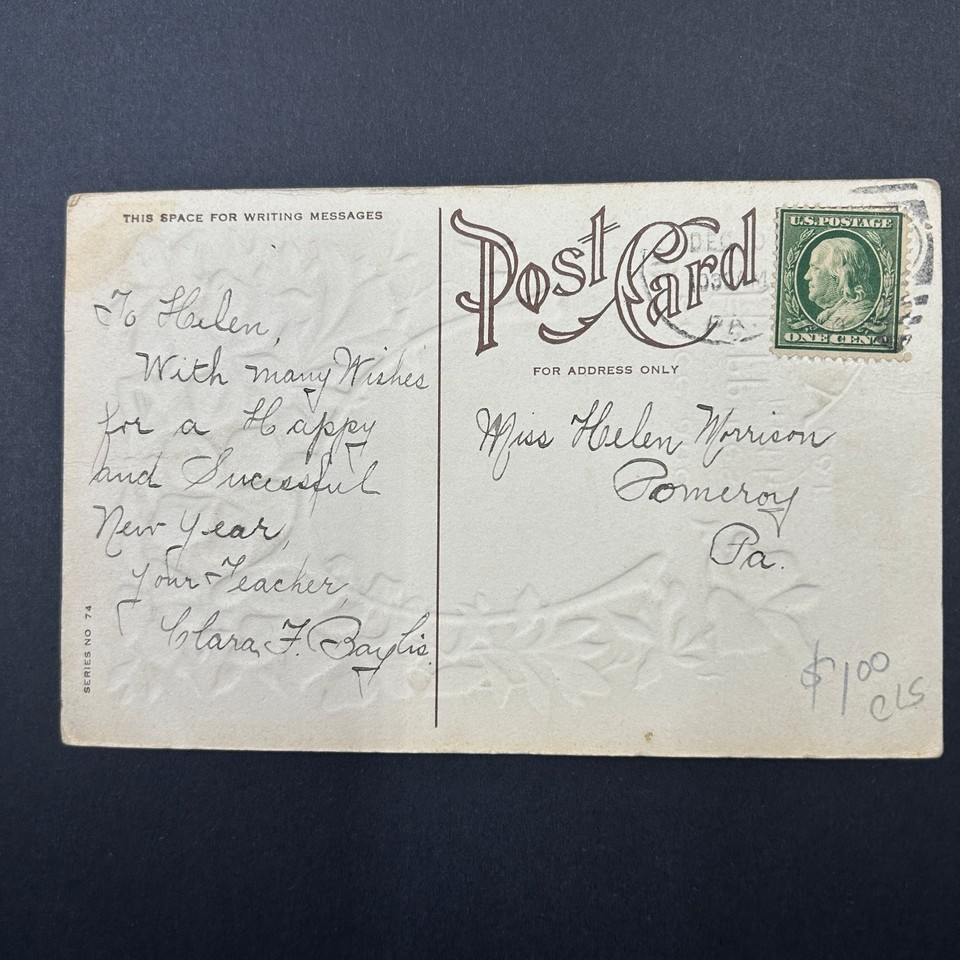 THIS SPACE FOR WRITING MESSAGES
To Helen,
With many Wishes
for a Happy
and Sucessful
New Year,
Your Teacher,
Clara F. Baylis.
SERIES NO 74
Post Card
FOR ADDRESS ONLY
U.S. POSTAGE
ONE CENT
DEC
PA.
Miss Helen Morrison
Pomeroy
Pa.
$1.00
CLS